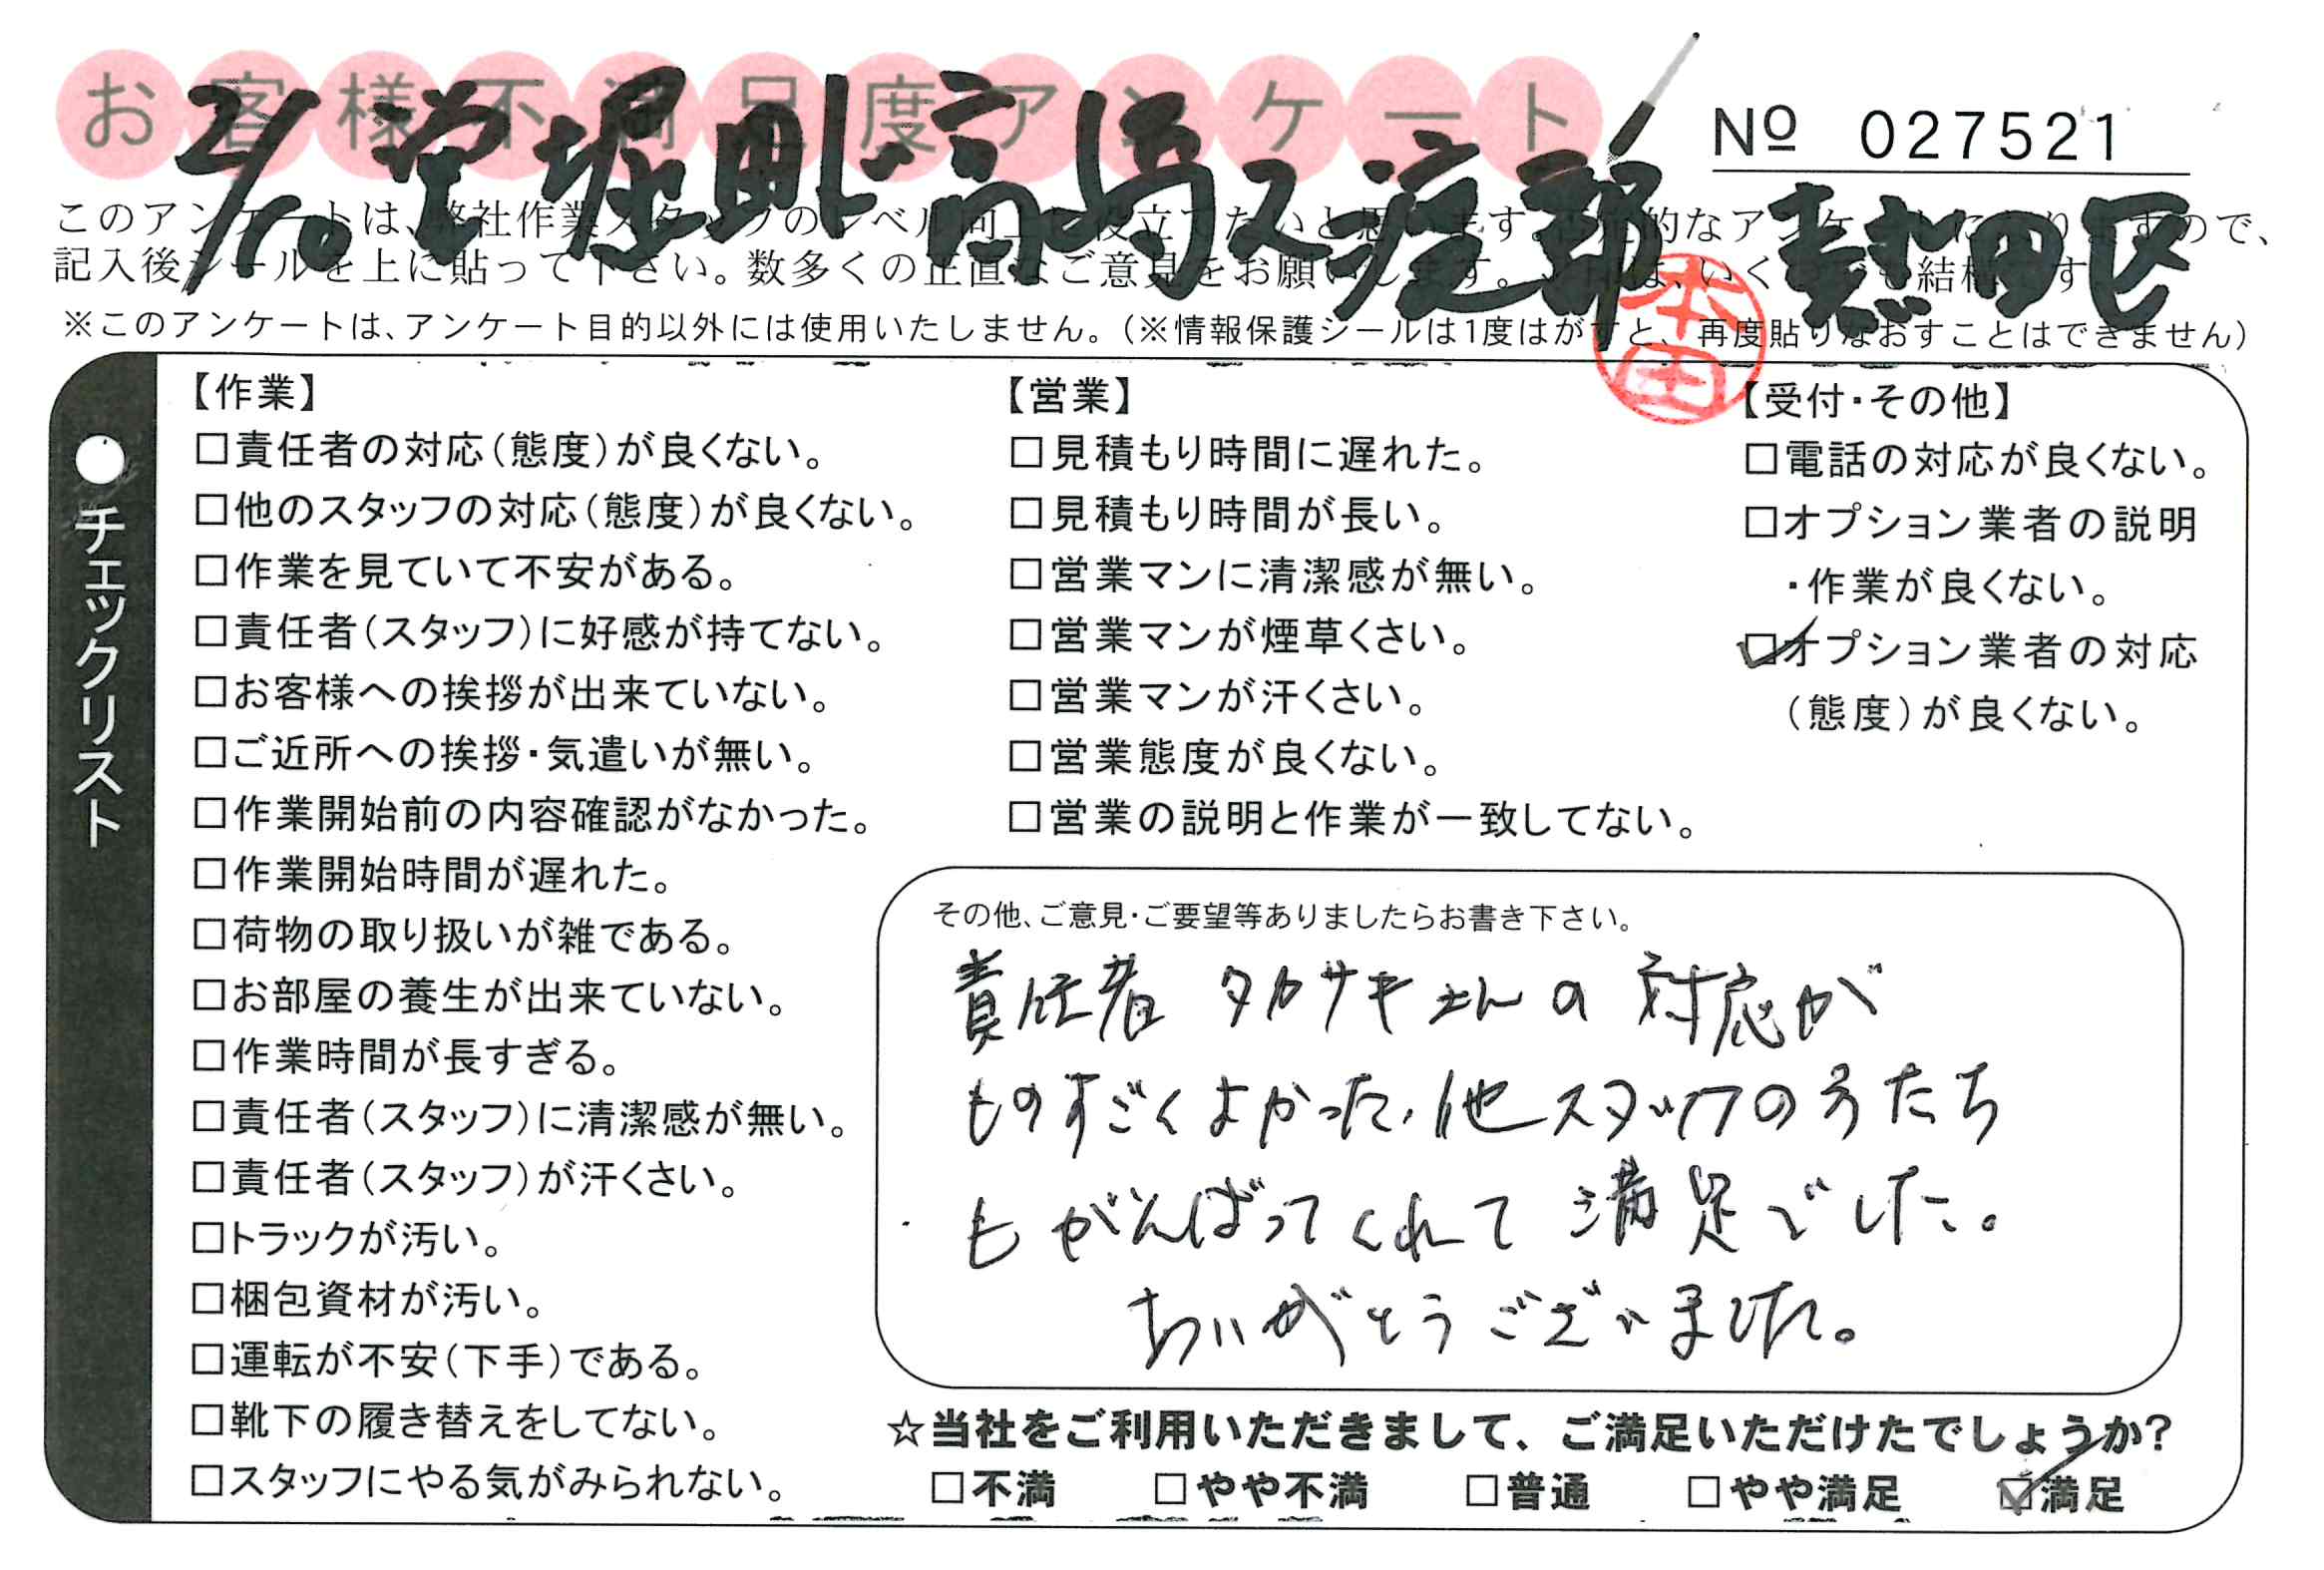 お客様不満足度アンケート
No 027521
2/10 営堀則 高崎 又 渡部 熱田区
このアンケートは、弊社作業スタッフのレベル向上に役立てたいと思います。
記入後シールを上に貼って下さい。数多くの正直なご意見をお願いします。
※このアンケートは、アンケート目的以外には使用いたしません。(※情報保護シールは1度はがすと、再度貼りなおすことはできません)
本田
●チェックリスト
【作業】
□責任者の対応(態度)が良くない。
□他のスタッフの対応(態度)が良くない。
□作業を見ていて不安がある。
□責任者(スタッフ)に好感が持てない。
□お客様への挨拶が出来ていない。
□ご近所への挨拶・気遣いが無い。
□作業開始前の内容確認がなかった。
□作業開始時間が遅れた。
□荷物の取り扱いが雑である。
□お部屋の養生が出来ていない。
□作業時間が長すぎる。
□責任者(スタッフ)に清潔感が無い。
□責任者(スタッフ)が汗くさい。
□トラックが汚い。
□梱包資材が汚い。
□運転が不安(下手)である。
□靴下の履き替えをしてない。
□スタッフにやる気がみられない。
【営業】
□見積もり時間に遅れた。
□見積もり時間が長い。
□営業マンに清潔感が無い。
□営業マンが煙草くさい。
□営業マンが汗くさい。
□営業態度が良くない。
□営業の説明と作業が一致してない。
【受付・その他】
□電話の対応が良くない。
□オプション業者の説明
・作業が良くない。
☑オプション業者の対応
(態度)が良くない。
その他、ご意見・ご要望等ありましたらお書き下さい。
責任者 タカサキさんの 対応が
ものすごくよかった、他スタッフの方たち
もがんばってくれて 満足でした。
ありがとうございました。
☆当社をご利用いただきまして、ご満足いただけたでしょうか?
□不満 □やや不満 □普通 □やや満足 ☑満足